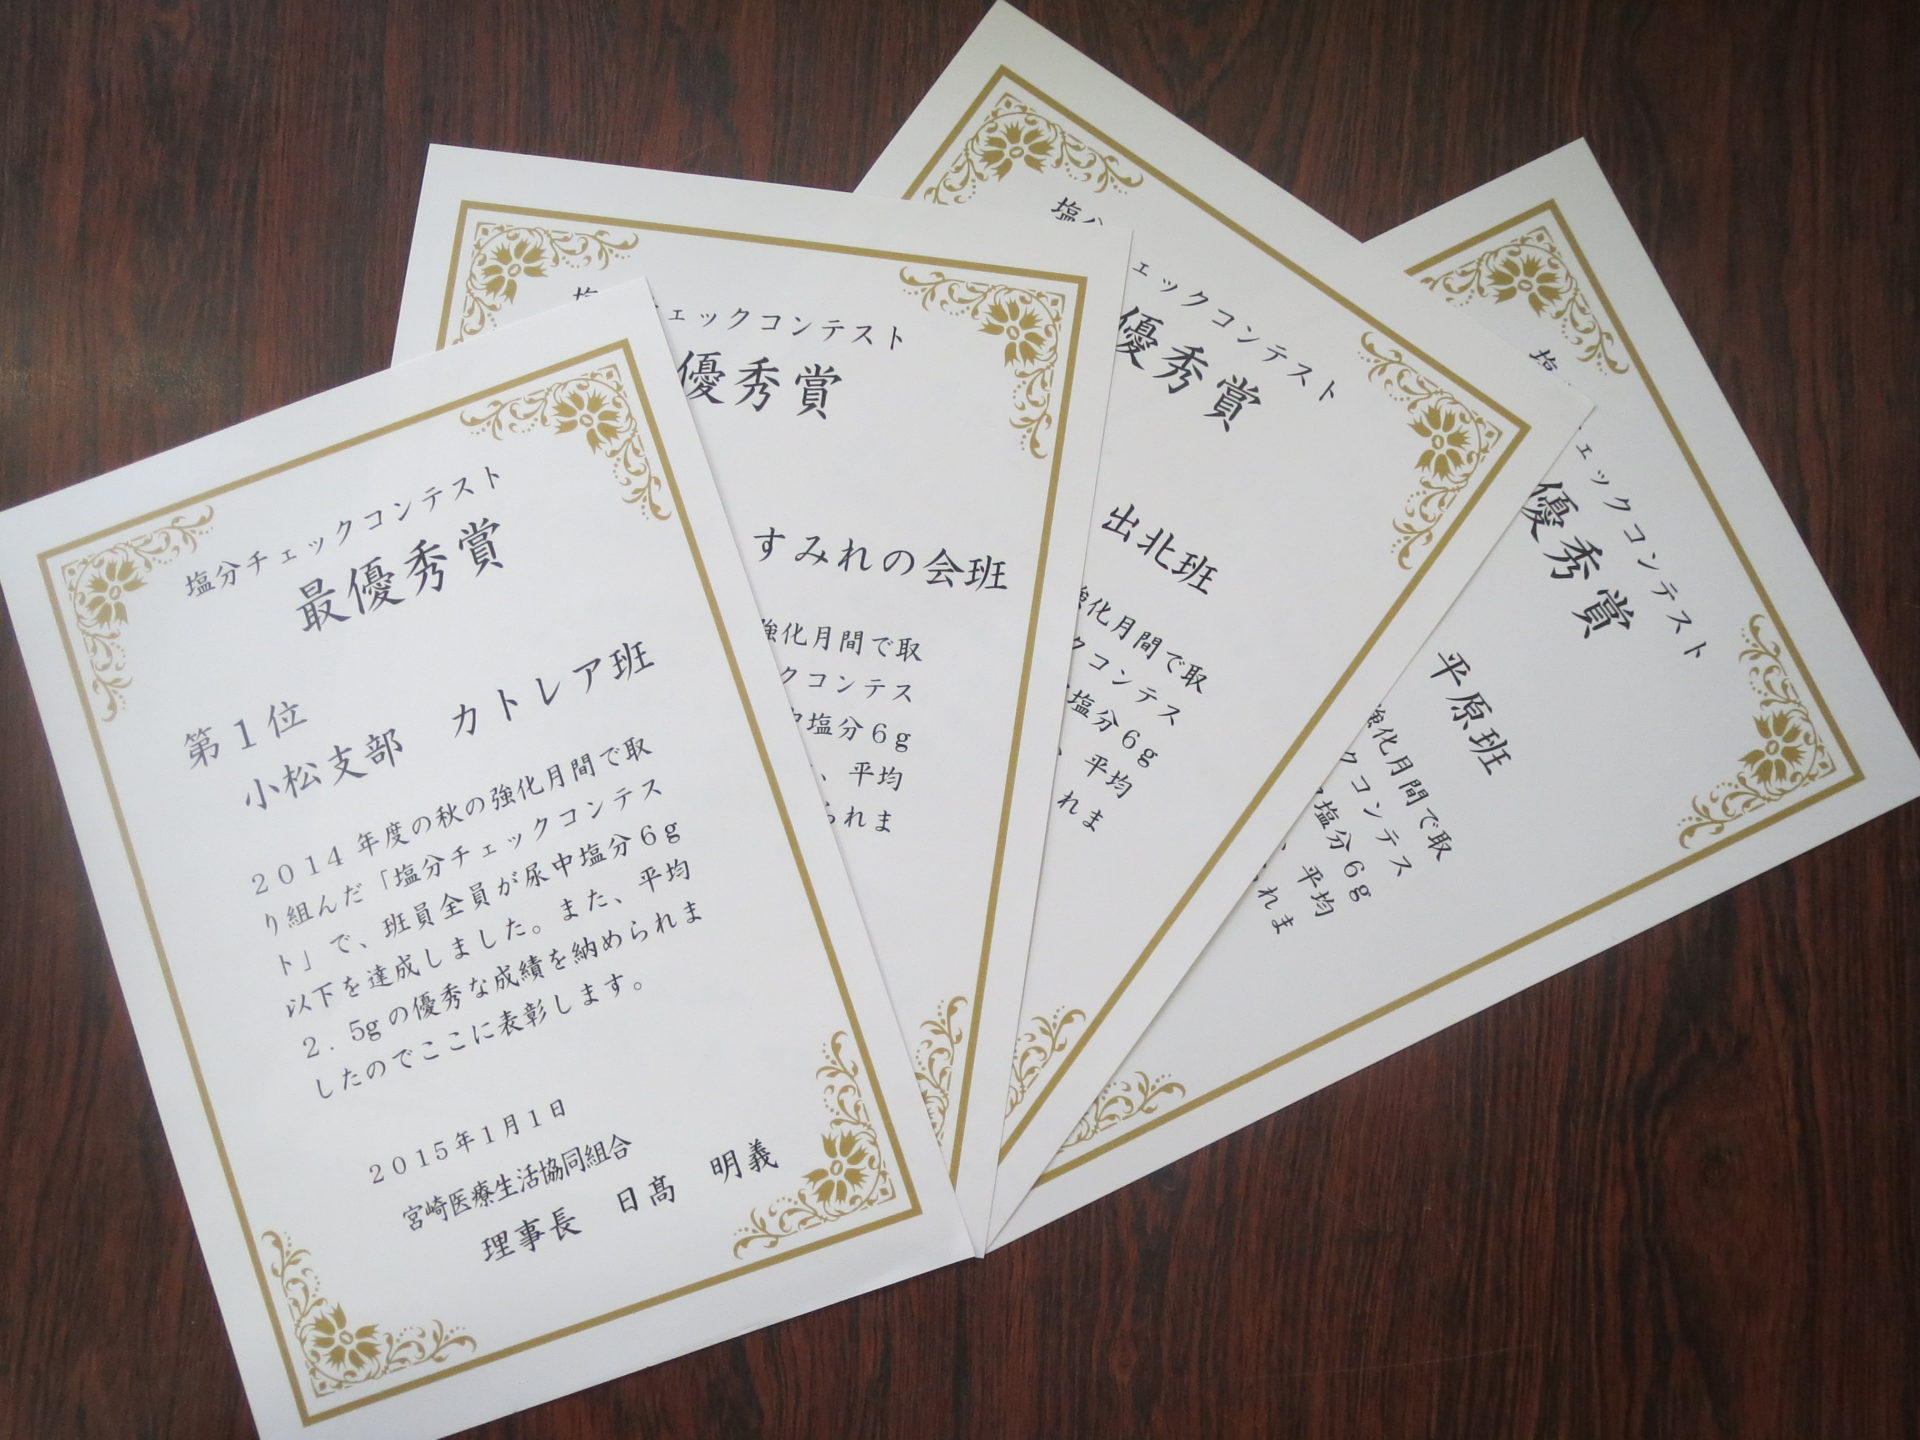 塩分チェックコンテスト
最優秀賞
第１位
小松支部　カトレア班
２０１４年度の秋の強化月間で取
り組んだ「塩分チェックコンテス
ト」で、班員全員が尿中塩分６ｇ
以下を達成しました。また、平均
２．5gの優秀な成績を納められま
したのでここに表彰します。
２０１５年１月１日
宮崎医療生活協同組合
理事長　日髙　明義
ェックコンテスト
優秀賞
すみれの会班
強化月間で取
クコンテス
塩分６ｇ
、平均
られま
塩
ェックコンテスト
優秀賞
出北班
化月間で取
クコンテス
塩分６ｇ
、平均
れま
ェックコンテスト
優秀賞
平原班
強化月間で取
クコンテス
塩分６ｇ
、平均
れま